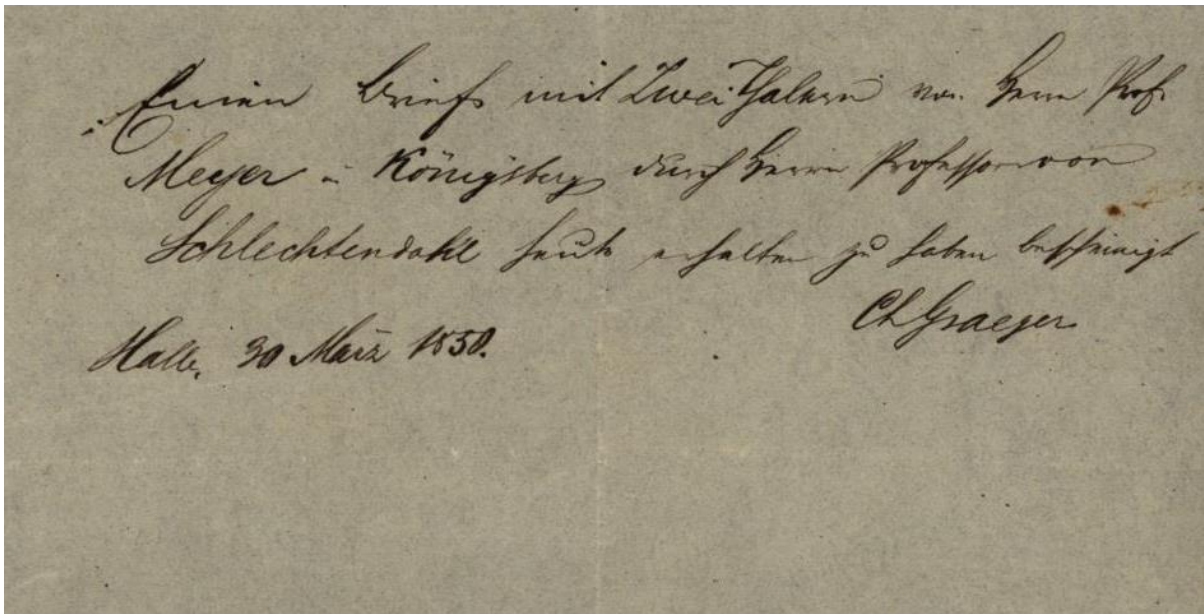 Einen Brief mit Zwei Thalern von Herrn Prof.
Meyer in Königsberg durch Herrn Professor von
Schlechtendahl heute erhalten zu haben bescheinigt
Ch Graeger
Halle, 30 März 1850.